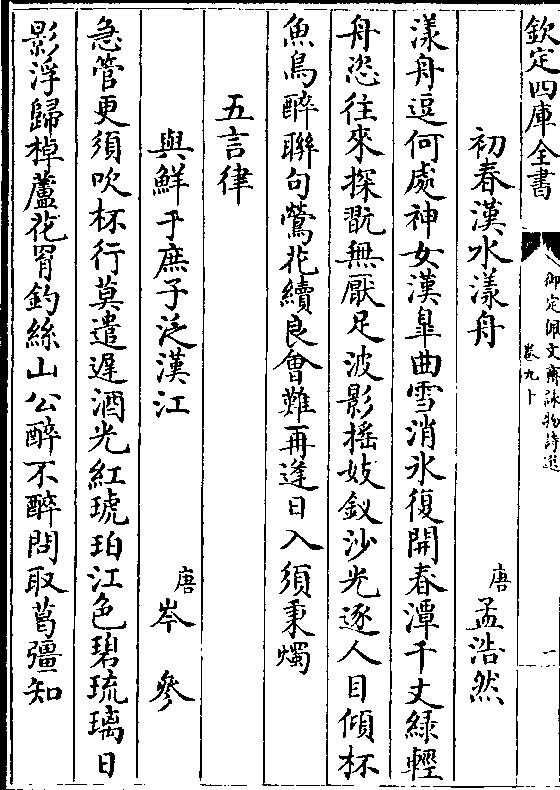 欽定四庫全書
御定佩文齋詠物詩選
卷九十
一
初春漢水漾舟
唐
孟浩然
漾舟逗何處神女漢皐曲雪消氷復開春潭千丈綠輕
舟恣往來探翫無厭足波影揺妓釵沙光逐人目傾杯
魚鳥醉聯句鶯花續良㑹難再逢日入須秉燭
五言律
與鮮于庶子泛漢江
唐
岑參
急管更須吹杯行莫遣遲酒光紅琥珀江色碧琉璃日
影浮歸棹蘆花罥釣絲山公醉不醉問取葛彊知